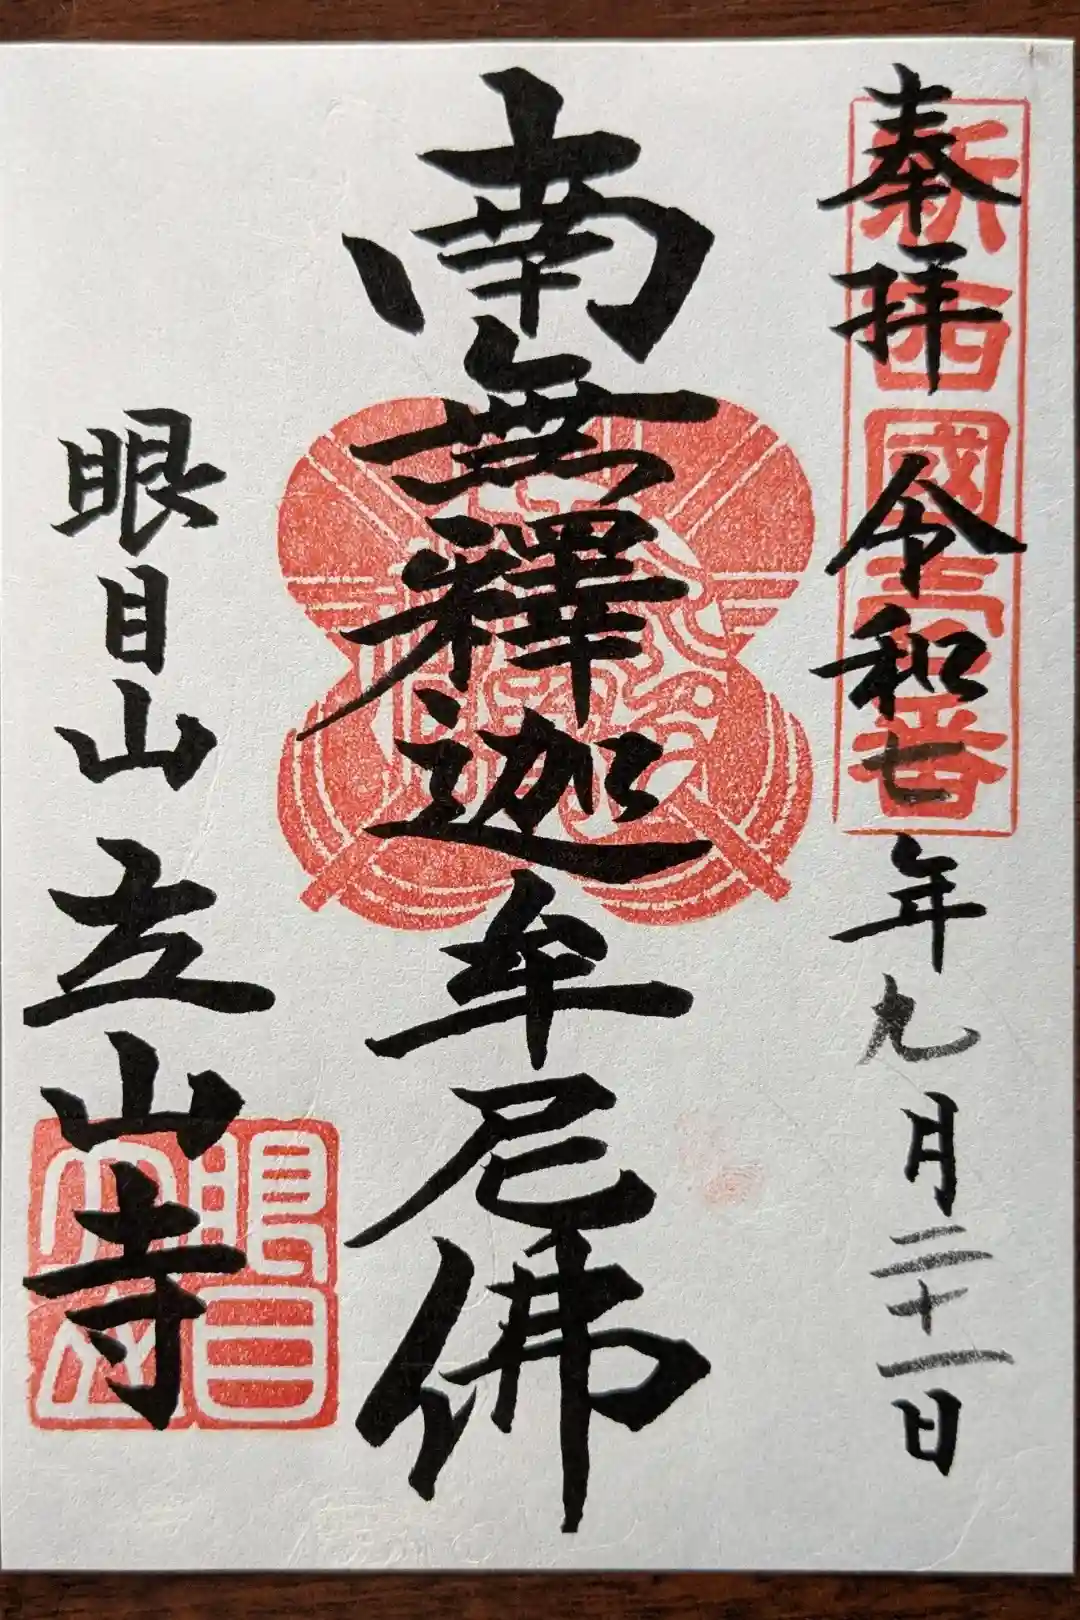 奉拝 令和七年九月二十一日
新西國壹番
南無釋迦牟尼佛
眼目山 立山寺
眼目